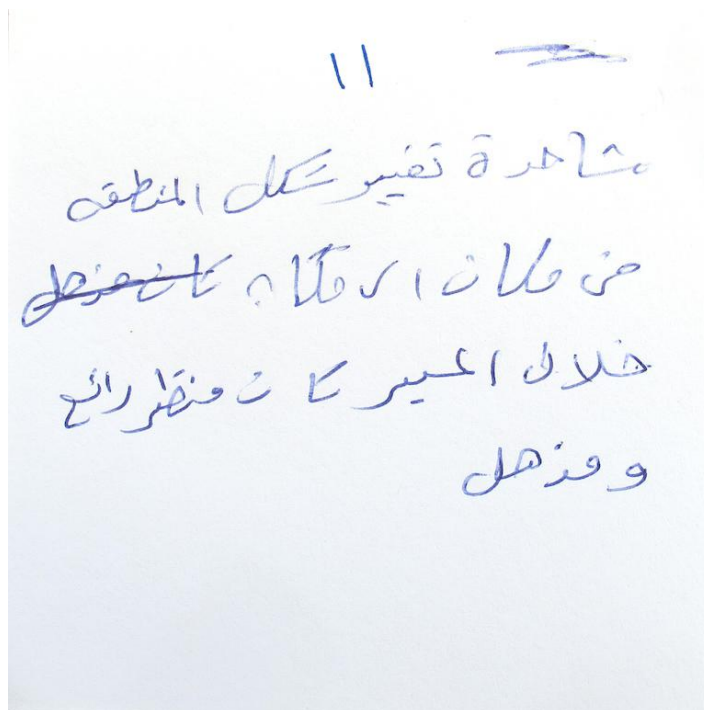 ١١
مشاهدة تغيير شكل المنطقه
من مكان الا مكان كان مذهل
خلال المسير كان منظر رائع
ومذهل